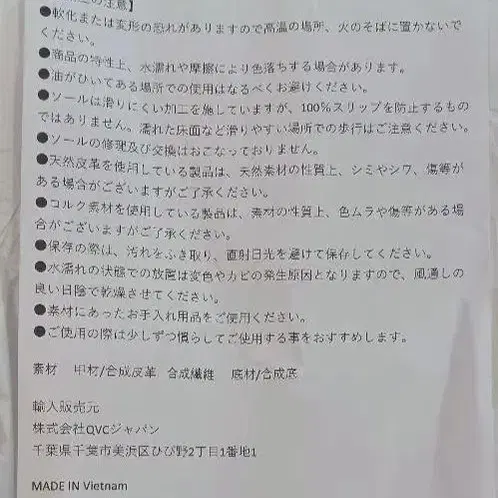 の注意】
●軟化または変形の恐れがありますので高温の場所、火のそばに置かないで
ください。
●商品の特性上、水濡れや摩擦により色落ちする場合があります。
●油がひいてある場所での使用はなるべくお避けください。
●ソールは滑りにくい加工を施していますが、100%スリップを防止するもの
ではありません。濡れた床面など滑りやすい場所での歩行はご注意ください。
●ソールの修理及び交換はおこなっておりません。
●天然皮革を使用している製品は、天然素材の性質上、シミやシワ、傷等が
ある場合がございますがご了承ください。
●コルク素材を使用している製品は、素材の性質上、色ムラや傷等がある場
合がございますがご了承ください。
●保存の際は、汚れをふき取り、直射日光を避けて保存してください。
●水濡れの状態での放置は変色やカビの発生原因となりますので、風通しの
良い日陰で乾燥させてください。
●素材にあったお手入れ用品をご使用ください。
●ご使用の際は少しずつ慣らしてご使用する事をおすすめします。
素材 甲材/合成皮革 合成繊維 底材/合成底
輸入販売元
株式会社QVCジャパン
千葉県千葉市美浜区ひび野2丁目1番地1
MADE IN Vietnam